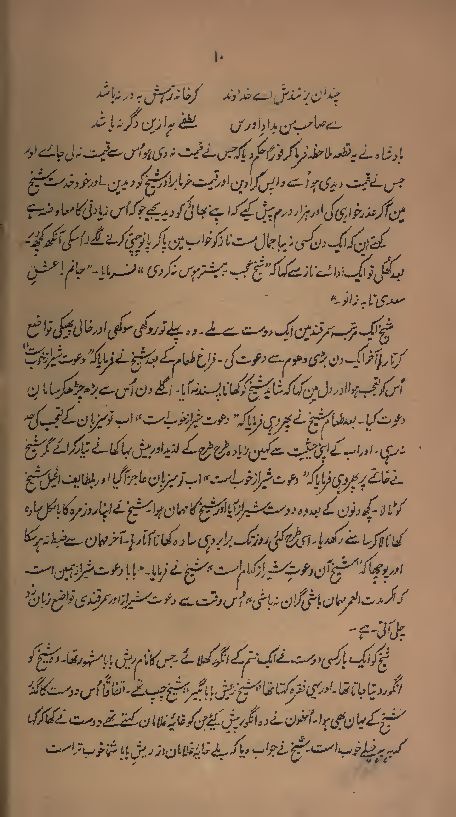 ۱۰
چندان بزنندش اے خداوند کز خانه رهش بدر نباشد
اے صاحب من بداد او رس لطفے به ازین دگر نباشد
بادشاہ نے یہ قطعہ ملاحظہ فرماکر فوراً حکم دیا کہ جس نے قیمت نہ دی ہو اُس سے قیمت نہ لی جاے اور
جس نے قیمت دیدی ہو اُسے واپس کرا دین اور قیمت خرما برادر شیخ کو دیدین۔ اور خود خدمت شیخ
مین آکر عذر خواہی کی اور ہزار درم پیش کیے کہ اپنے بھائی کو دیدیجے جو کہ اُس زیادتی کا معاوضہ ہے
کہتے ہین کہ ایک دن کسی زیبا جمال مست ناز کو خواب مین پاکر پانو چومتے کرنے لگے۔ اُسکی آنکھ کچھ
بعد کُھلی تو ایک ادائے ناز سے کہا کہ "شیخ عجب بیشتر ہوس نہ کردی" فرمایا۔ "جانم! عشق
سعدی تا بہ زانو۔"
شیخ ایک مرتبہ سمرقند مین ایک دوست سے ملے۔ وہ پہلے تو روکھی سوکھی اور خالی پھیکی تواضع
کرتا رہا آخر ایک دن بڑی دھوم سے دعوت کی۔ فراغ طعام کے بعد شیخ نے فرمایا کہ "دعوت شیراز خوبست"
اُس کو تعجب ہوا اور دل مین کہا کہ شاید شیخ کو کھانا پسند نہ آیا۔ اگلے دن اُس سے بڑھ چڑھ کر سامان
دعوت کیا۔ بعد طعام شیخ نے پھر وہی فرمایا کہ "دعوت شیراز خوب است" اب تو میزبان کے تعجب کی حد
نہ رہی۔ اور اب کے اپنی حیثیت سے کہین زیادہ طرح طرح کے لذیذ اور بیش بہا کھانے تیار کرائے مگر شیخ
نے خاتمے پر پھر وہی فرمایا کہ "دعوت شیراز خوب است" اب تو میزبان عاجز آگیا اور بلطائف الحیل شیخ
کو ٹالا۔ کچھ دنون کے بعد وہ دوست شیراز آیا اور شیخ کا مہمان ہوا۔ شیخ نے اپنا روز مرہ کا بالکل سادہ
کھانا لا کر سامنے رکھدیا۔ اسی طرح کئی روز تک برابر وہی سادہ کھانا آتا رہا۔ آخر مہمان سے ضبط نہ ہوسکا
اور پوچھا کہ "شیخ آن دعوت شیراز کدام است" شیخ نے فرمایا۔ "بابا دعوت شیراز ہمین است
کہ اگر مدت العمر مہمان باشی گران نہ باشی" اُس وقت سے دعوت شیراز اور سمرقندی تواضع زبان زد
چلی آتی ہے۔
شیخ کو ایک پارسی دوست نے ایک قسم کے انگور کھلائے جس کا نام ریش بابا مشہور تھا۔ وہ شیخ کو
انگور دیتا جاتا تھا۔ اور یہی فقرہ کہتا تھا "شیخ ریش بابا بگیر" شیخ چپ تھے۔ اتفاقاً اُس دوست کا گذر
شیخ کے یہان بھی ہوا۔ اُنھون نے وہ انگور پیش کیے جن کو خایۂ غلامان کہتے تھے دوست نے کھا کر کہا
کہ خوب است۔ شیخ نے جواب دیا کہ بلے خایۂ غلامان از ریش بابا شما خوب تر است